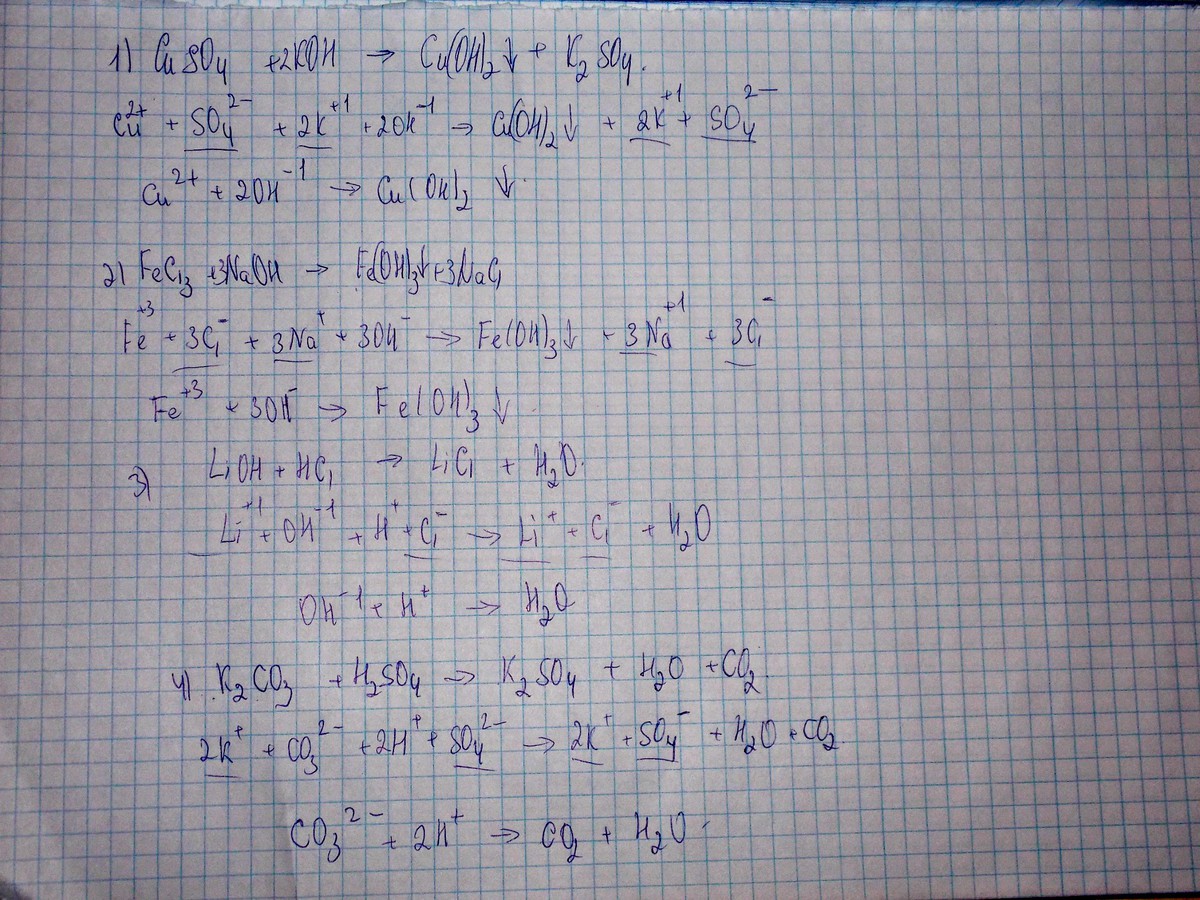 1) CuSO₄ +2KOH → Cu(OH)₂↓ + K₂SO₄.
Cu²⁺ + SO₄²⁻ + 2K⁺¹ + 2OH⁻¹ → Cu(OH)₂↓ + 2K⁺¹ + SO₄²⁻
Cu²⁺ + 2OH⁻¹ → Cu(OH)₂ ↓.
2) FeCl₃ +3NaOH → Fe(OH)₃↓+3NaCl
Fe⁺³ + 3Cl⁻ + 3Na⁺ + 3OH⁻ → Fe(OH)₃↓ + 3Na⁺¹ + 3Cl⁻
Fe⁺³ + 3OH⁻ → Fe(OH)₃↓.
3) LiOH + HCl → LiCl + H₂O.
Li⁺¹ + OH⁻¹ + H⁺ + Cl⁻ → Li⁺ + Cl⁻ + H₂O
OH⁻¹ + H⁺ → H₂O
4) K₂CO₃ + H₂SO₄ → K₂SO₄ + H₂O + CO₂.
2K⁺ + CO₃²⁻ + 2H⁺ + SO₄²⁻ → 2K⁺ + SO₄⁻ + H₂O + CO₂.
CO₃²⁻ + 2H⁺ → CO₂ + H₂O.